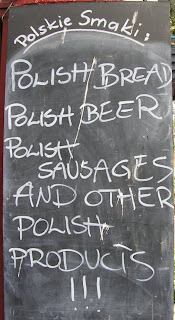 Polskie Smaki:
POLISH BREAD
POLISH BEER
POLISH
SAUSAGES
AND OTHER
POLISH
PRODUCTS
!!!